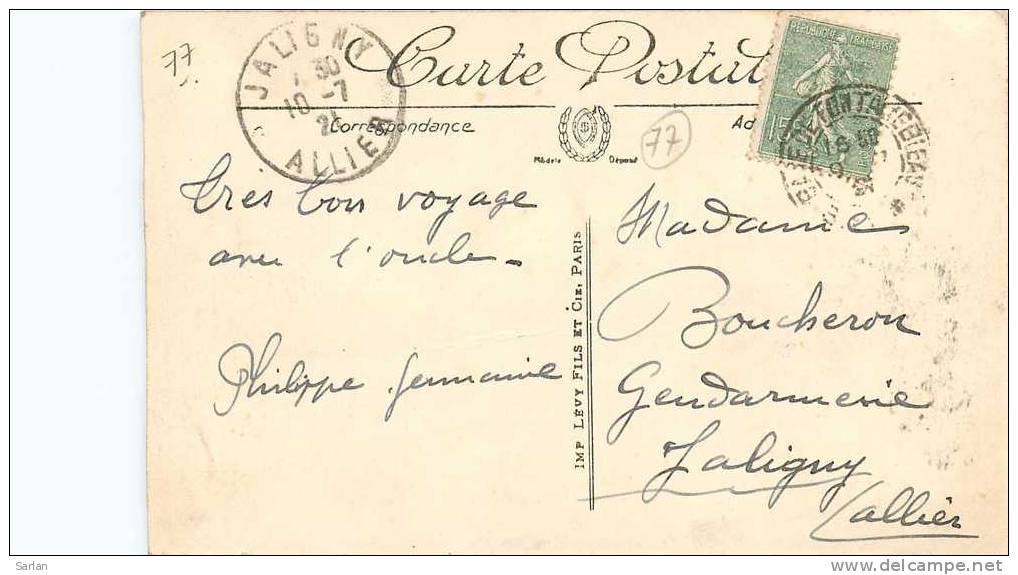 77
JALIGNY
30
10 -7
21
ALLIER
Carte Postale
Correspondance
Modèle Déposé
77
RÉPUBLIQUE FRANÇAISE
15
GARE DE FONTAINEBLEAU
18
Très bon voyage
avec l'oncle -
Philippe Germaine
IMP LÉVY FILS ET CIE, PARIS
Madame
Boucheron
Gendarmerie
Jaligny
(allier
Sarlan
www.delcampe.net